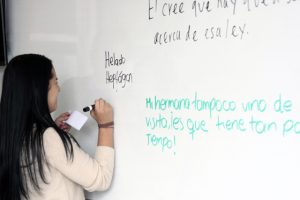 El cree que hay que
acerca de esa ley.
Helado
Mi hermana tampoco vino de
visita, ¡es que tiene tan po
Tiempo!